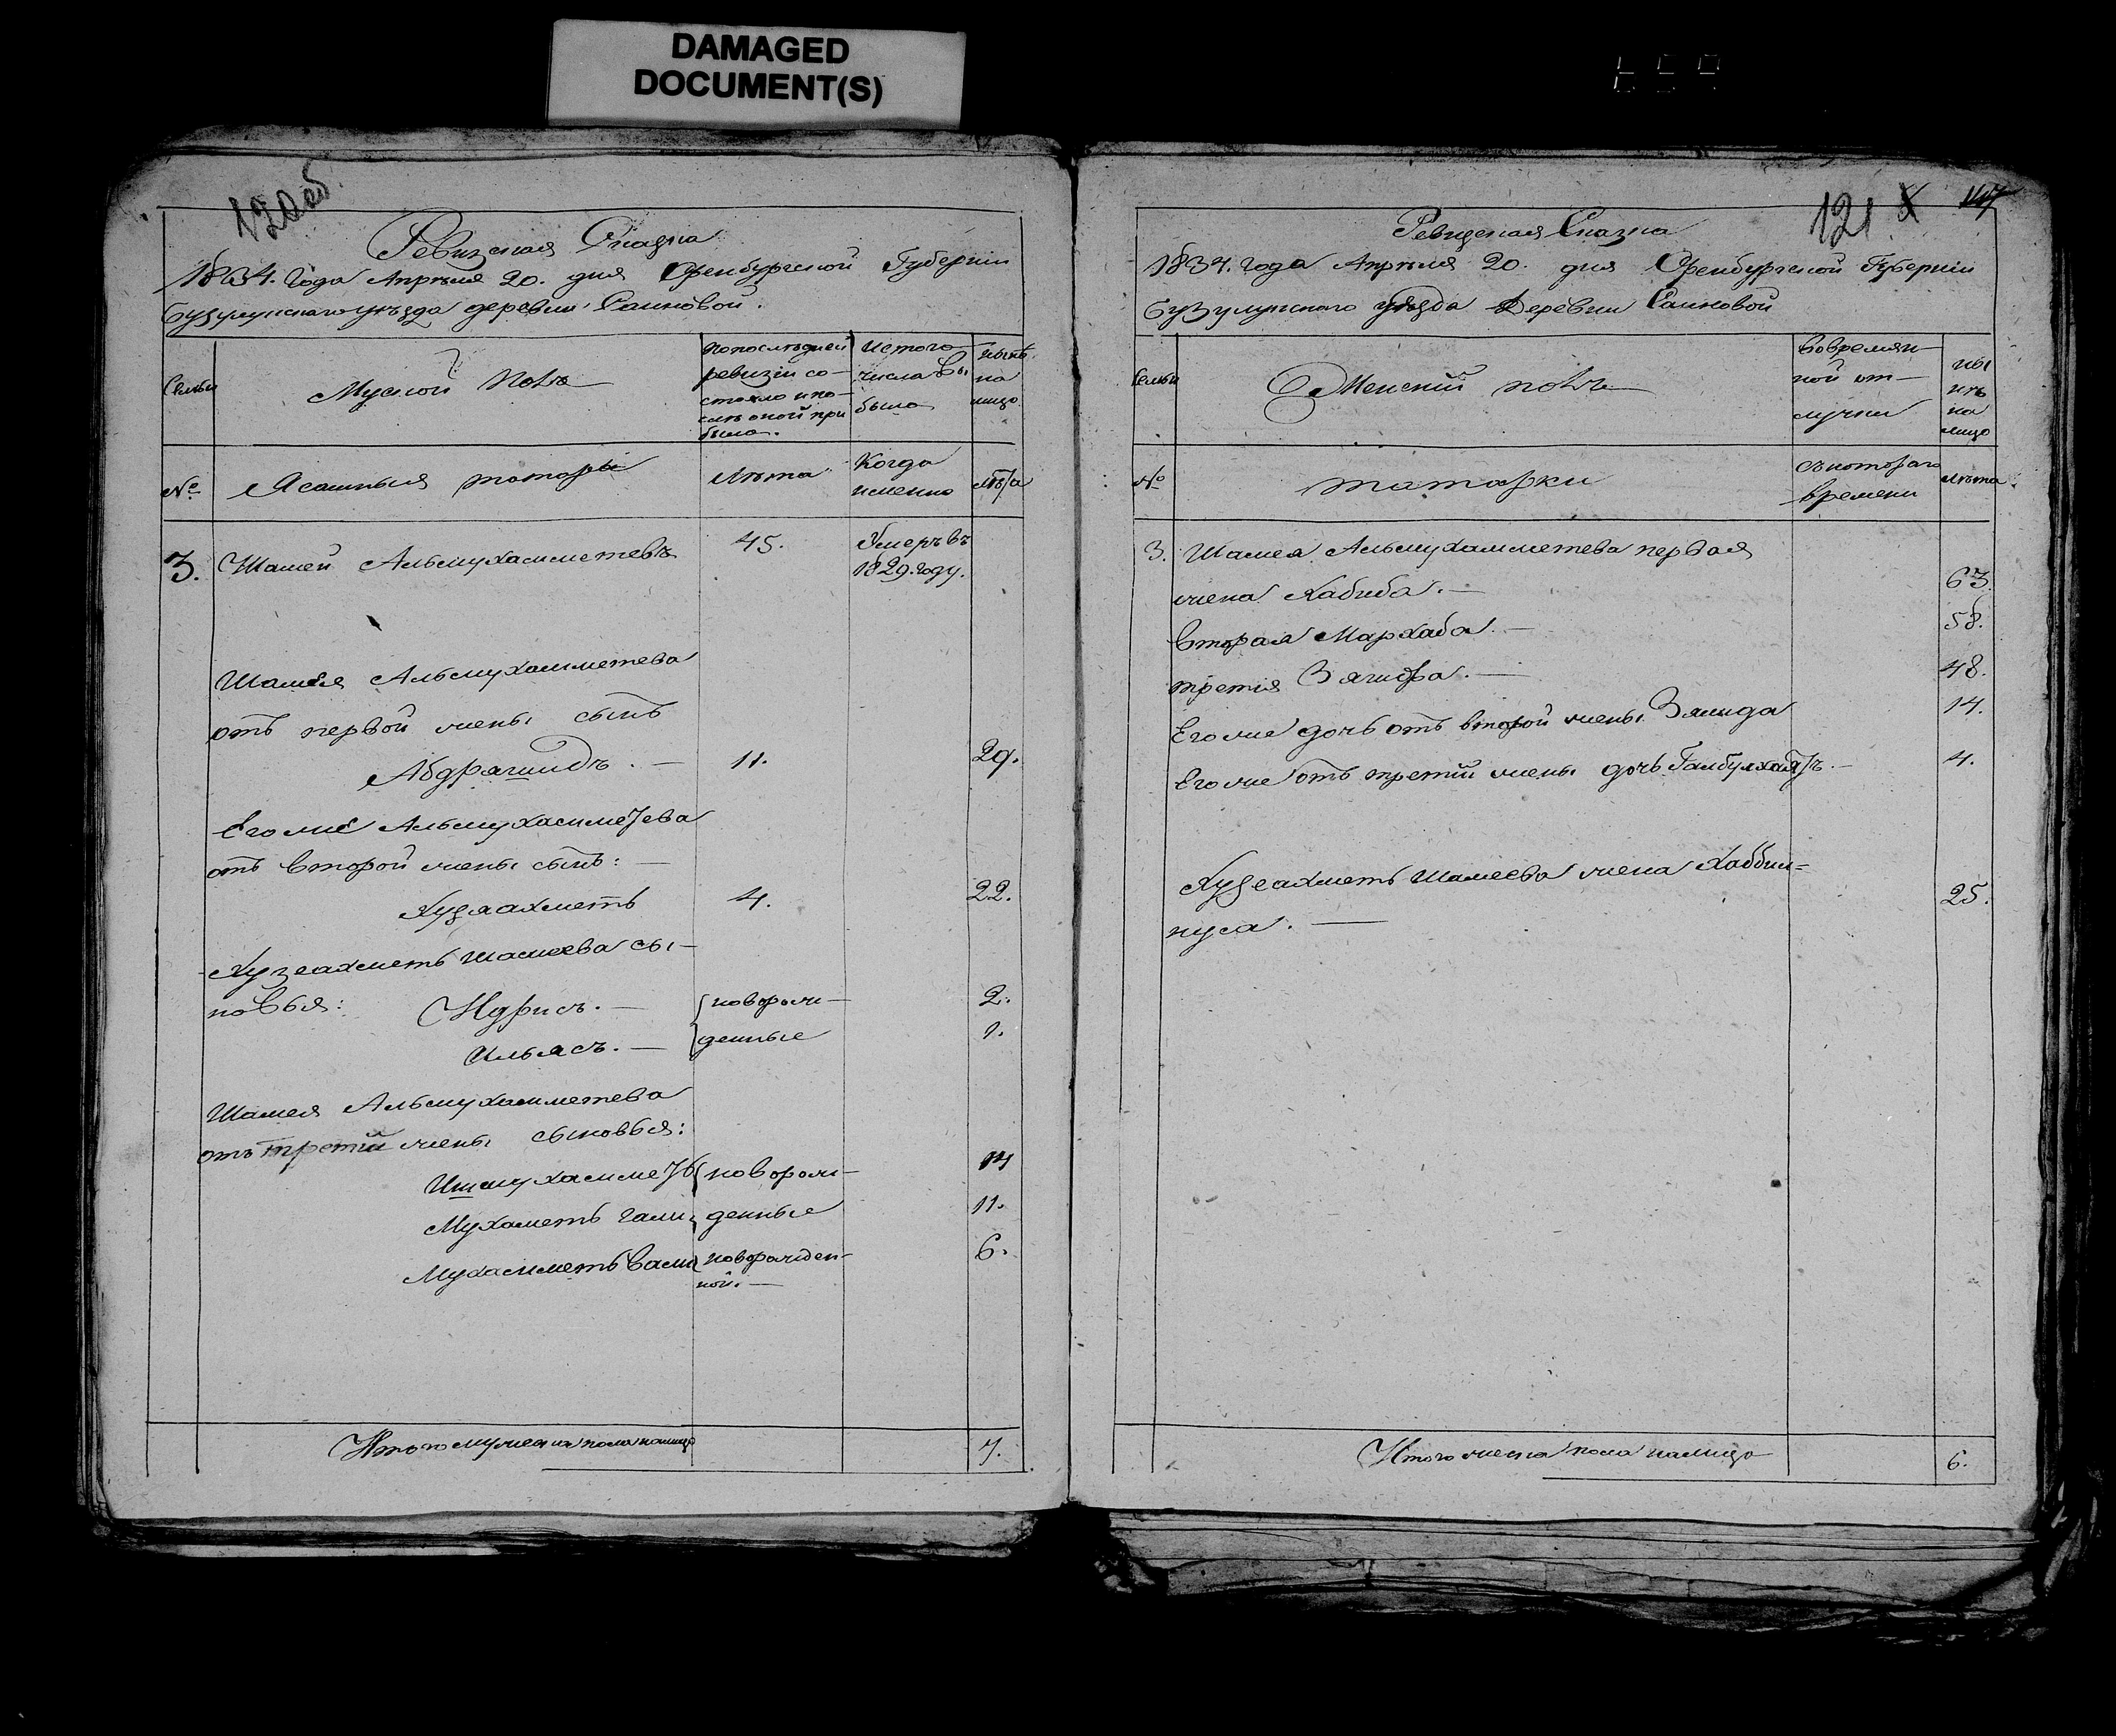 DAMAGED
DOCUMENT(S)
120об.
Ревизская Сказка
1834. Года Апреля 20. дня Оренбургской Губернiи
Бузулукскаго уѣзда деревни Саиновой.
Семьи
Муской Полъ
попослѣдней
ревизiи со-
стояло и по-
слѣ оной при
было.
Истого
числа вы
было
нынѣ
на
лицо
№
Ясашныя татары
Лѣта
Когда
именно
Лѣта
3. Шамей Альмухамметевъ 45. Умеръ въ
1829. году.
Шамея Альмухамметева
отъ первой жены сынъ
Абдрашидъ. — 11. 29.
Его же Альмухамметева
отъ второй жены сынъ: —
Хузяахметь 4. 22.
Хузеахметь Шамеева сы-
новья: Идрисъ. — новорож- 2.
Ильясъ. — денные 1.
Шамея Альмухамметева
отъ третiй жены сыновья:
Ишмухамметь новорож- 14
Мухаметь гали денные 11.
Мухамметь вали новорожден- 6.
ной. —
Итого мужеска пола налицо 7.
121 X
Ревизская Сказка
1834. года Апрѣля 20. дня Оренбургской Губернiи
Бузулукского уѣзда Деревни Саиновой
Семьи
Женскiй полъ
Вовремян-
ной от-
лучки
ны
нѣ
на
лицо
№
татарки
Съкотораго
времени
Лѣта
3. Шамея Альмухамметева первая
жена Хабиба. — 63.
вторая Мархаба. — 58.
третия Зягифа. — 48.
Его же дочь отъ второй жены Зялида 14.
Его же отъ третiй жены дочь 4.
Хузеахметь Шамеева жена Хаббин-
нуса. — 25.
Итого женска пола налицо 6.